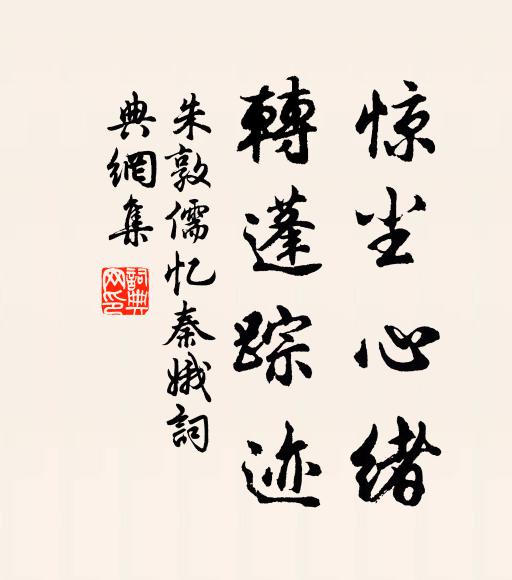 惊尘心绪
轉蓬踪迹
朱敦儒忆秦娥詞
典網集
詞典网印